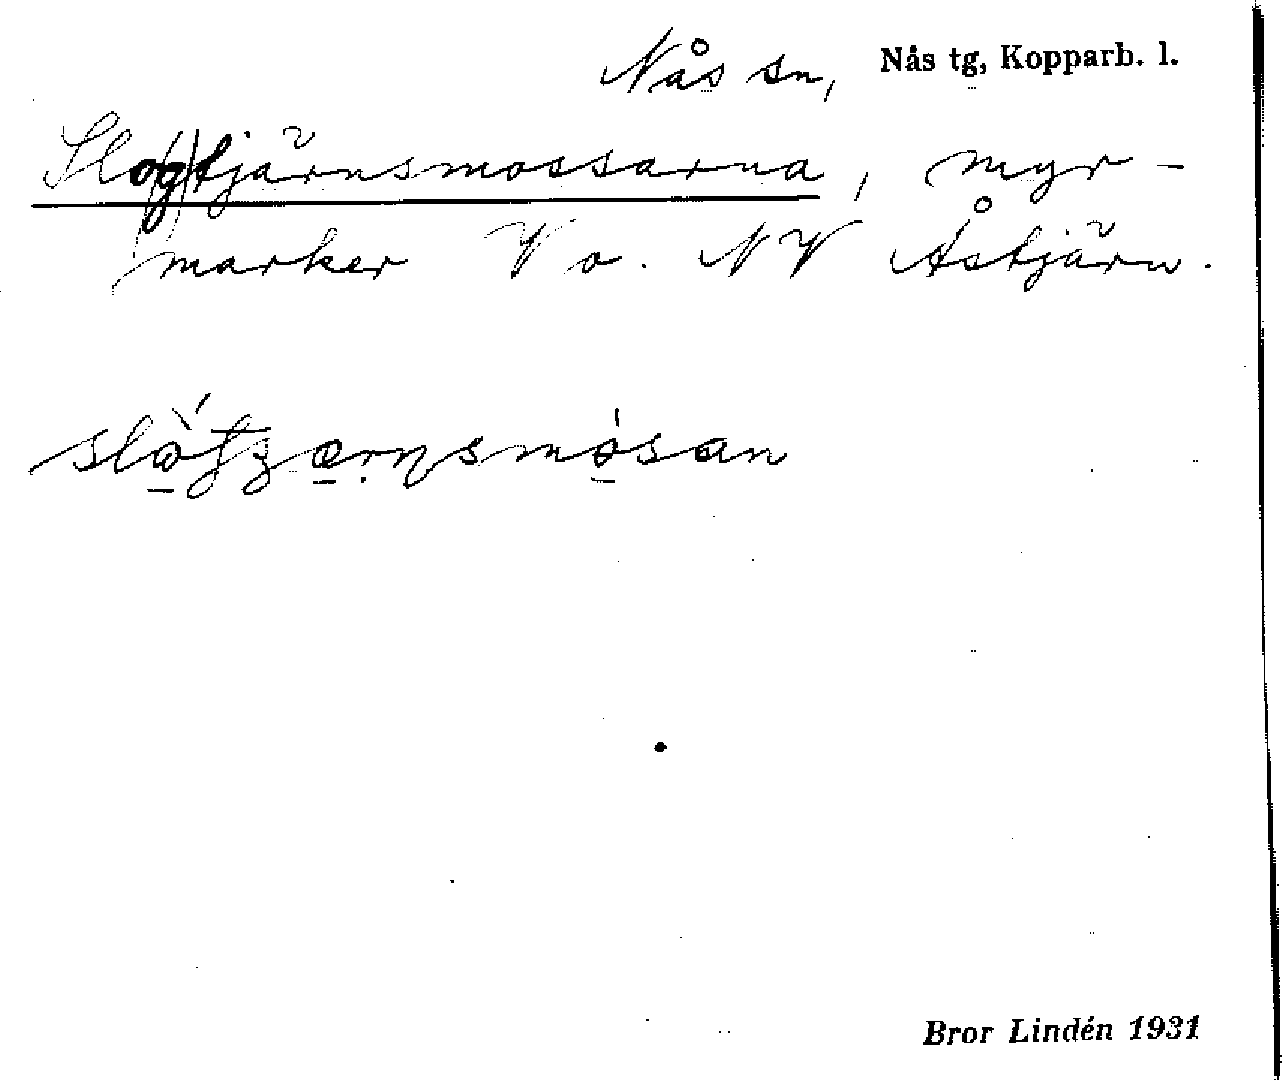 Nås sn, Nås tg, Kopparb. l.
Slo(g)tjärnsmossarna, myr-
marker V o. NV Åstjärn.
Bror Lindén 1931